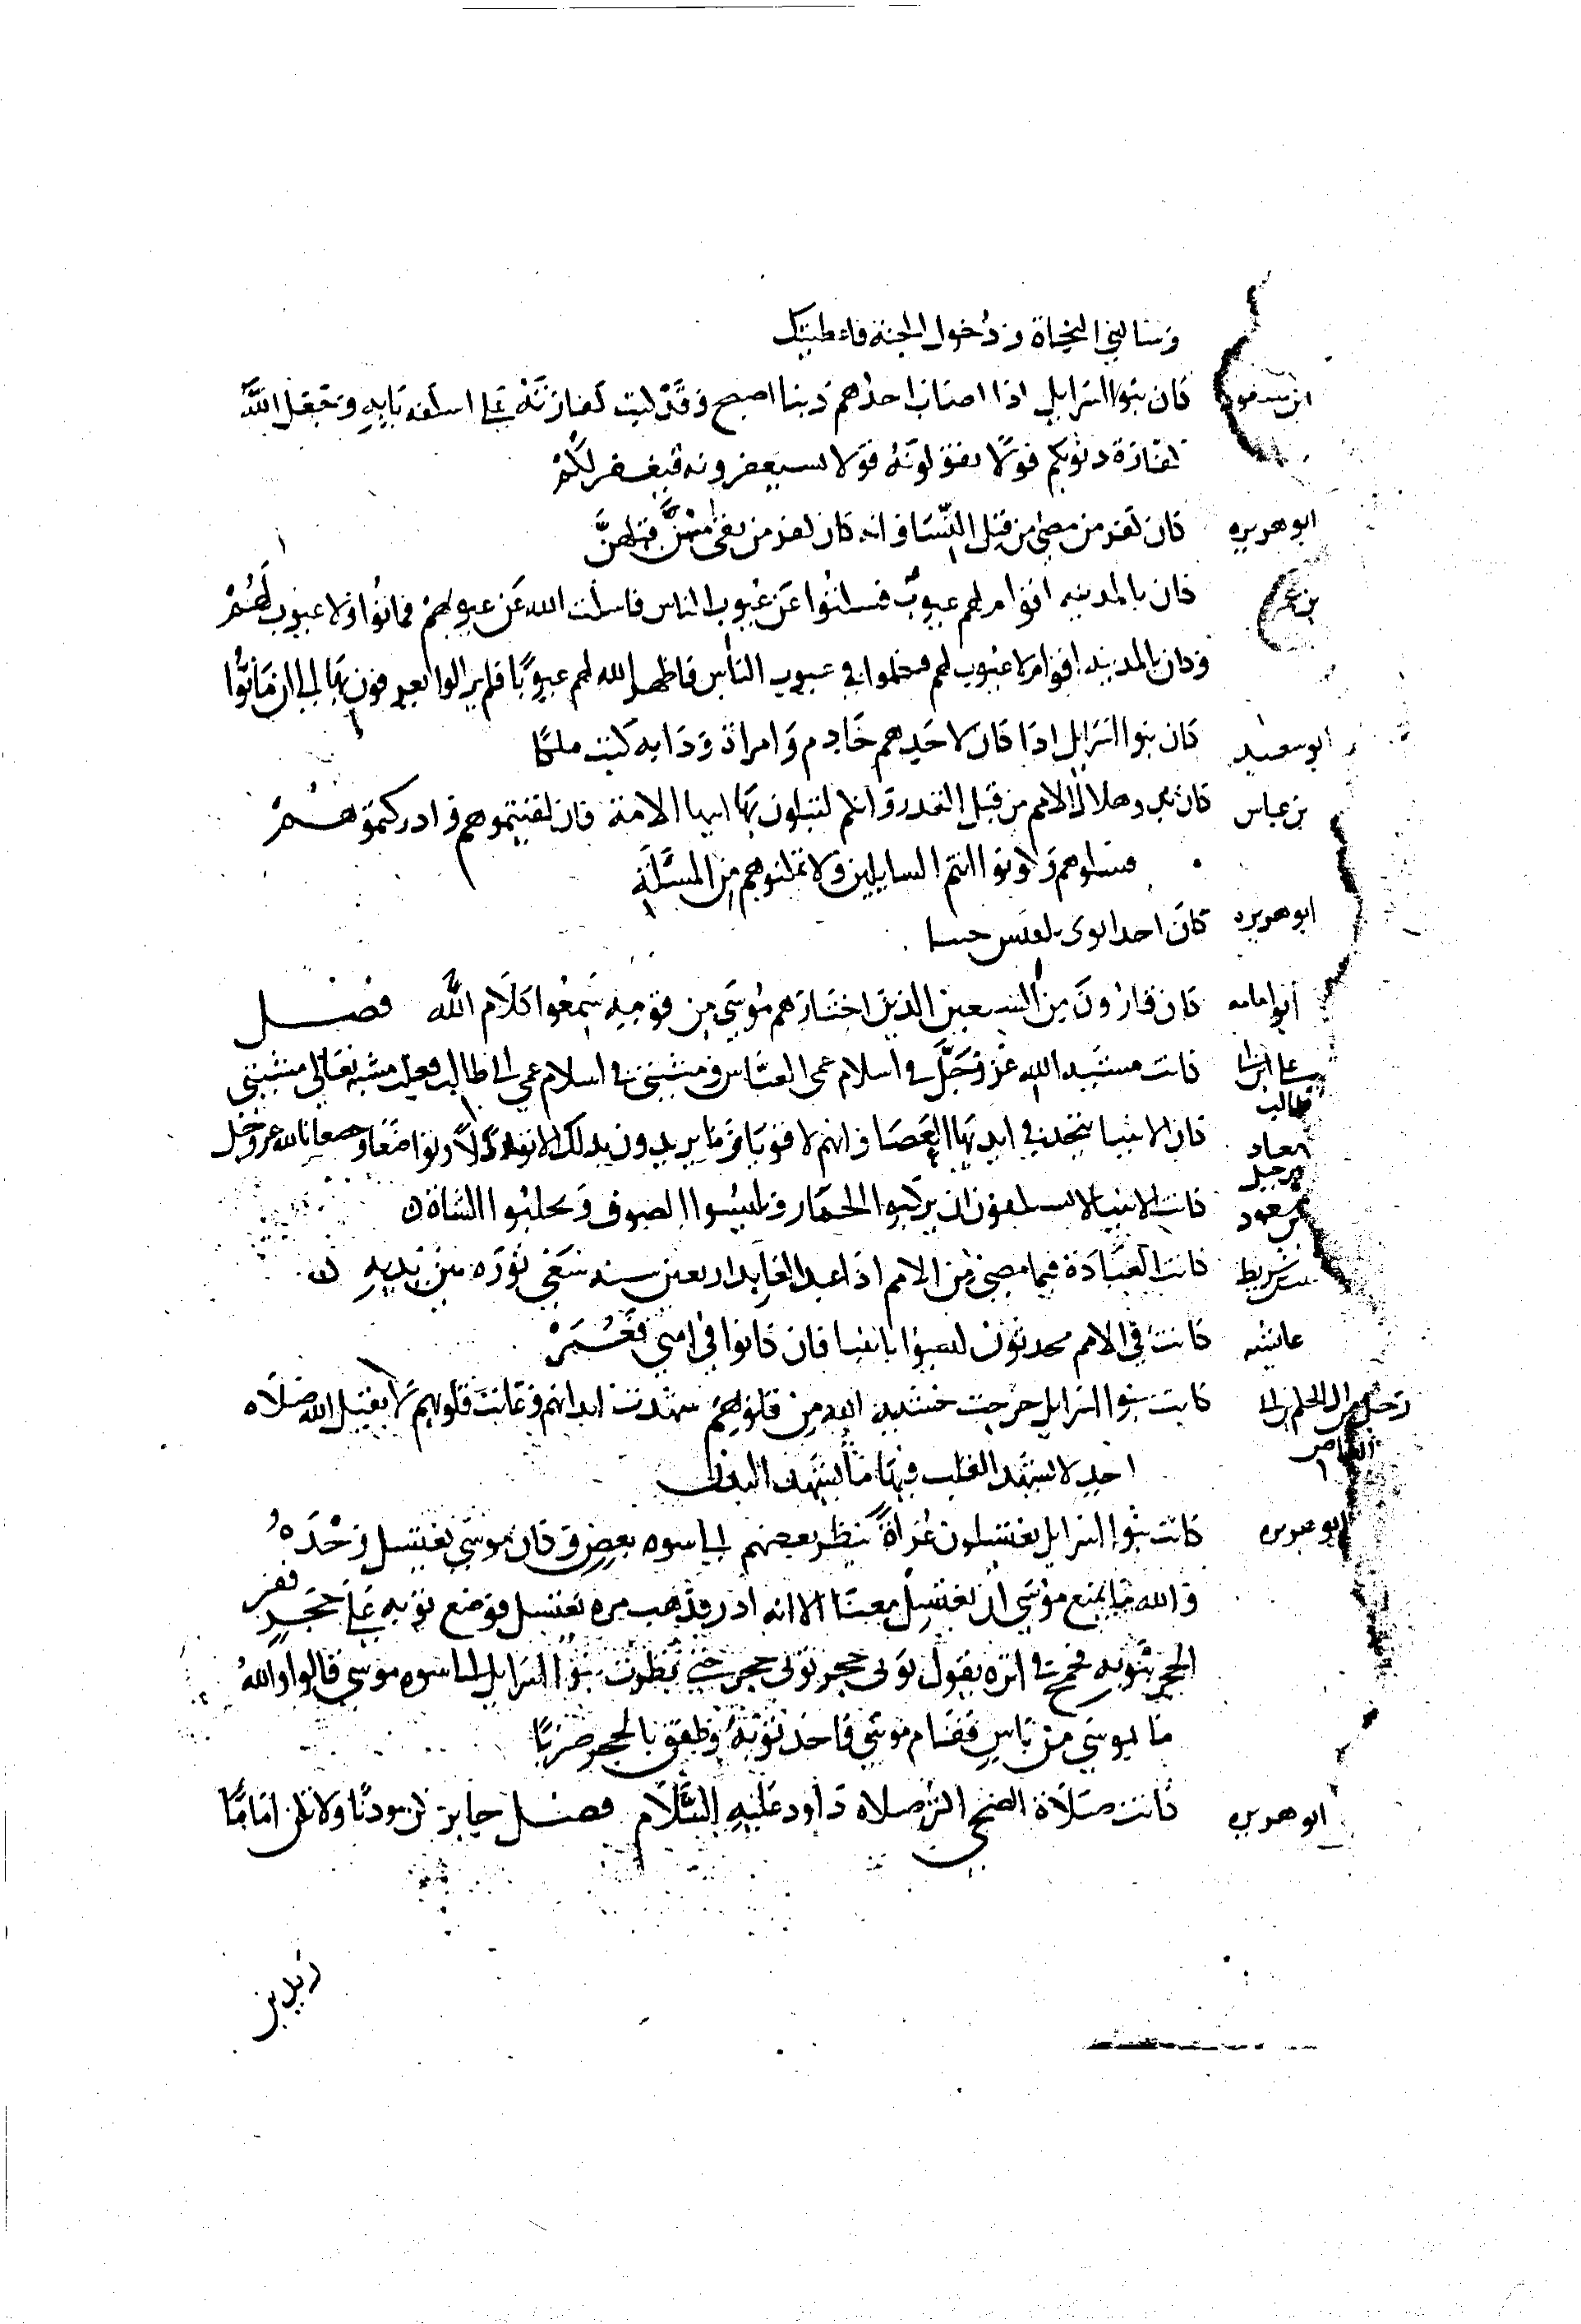 وسالني النجاة ودخول الجنة فاعطيتك
ابن مسعود كان بنوا اسرايل اذا اصاب احدهم ذنبا اصبح وقد كتبت كفارته على اسكفه بابه وجعل الله
كفارة ذنوبكم قولا تقولونه قولا تستغفرونه فيغفر لكم
ابو هريره كان كفر من مضى من قبل النسا وانه كان كفر من بقى منهن قبلهن
بن عمر كان بالمدينه اقوام لهم عيوب فسكتوا عن عيوب الناس فاسكت الله عن عيوبهم فماتوا ولا عيوب لهم
وكان بالمدينه اقوام لا عيوب لهم فتكلموا في عيوب الناس فاظهر الله لهم عيوبا فلم يزالوا يعرفون بها الى ان ماتوا
ابو سعيد كان بنوا اسرايل اذا كان لاحدهم خادم وامراة ودابه كتبت ملكا
بن عباس كان بدو هلاك الامم من قبل القدر وانكم لتبلون بها ايها الامة فان لقيتموهم وادركتموهم
فسلوهم وكونوا انتم السايلين ولا تمكنوهم من المسئلة
ابو هريره كان احد ابوى بلقيس جنيا
ابو امامه كان قارون من السبعين الذين اختارهم موسى من قومه سمعوا كلام الله فصل
علي بن ابي طالب كانت مشيه الله عز وجل في اسلام عمي العباس ومشيتي في اسلام عمي ابي طالب فغلبت مشيه تعالى مشيتي
معاذ بن جبل كان الانبيا يتخذن في ايديها العصا وانهم لاقويا وما يريدون بذلك الا توكلا وتواضعا وخضعانا لله عز وجل
بن مسعود كانت الانبيا لا يستنكفون ان يركبوا الحمار ويلبسوا الصوف ويحلبوا الشاة
شريط كانت العبادة فيما مضى من الامم اذا عبد العابد اربعين سنه سعى نوره بين يديه
عايشه كانت في الامم محدثون ليسوا بانبيا فان كانوا في امتي فعمر
كانت بنوا اسرايل خرجت خشيه الله من قلوبهم شهدت ابدانهم وغابت قلوبهم لا يقبل الله صلاه
احد لا يشهد القلب فيها ما يشهد البدن
ابو هريره كانت بنوا اسرايل يغتسلون عراة ينظر بعضهم الى سوه بعض وكان موسى يغتسل وحده
والله ما يمنع موسى ان يغتسل معنا الا انه ادر فذهب مره يغتسل فوضع ثوبه على حجر ففر
الحجر بثوبه فجمح في اثره يقول ثوبي حجر ثوبي حجر حتى نظرت بنوا اسرايل الى سوه موسى قالوا والله
ما بموسى من باس فقام موسى فاخذ ثوبه وطفق بالحجر ضربا
ابو هريره كانت صلاة الضحى اكثر صلاه داود عليه السلام فصل جابر كن موذنا ولا تكن اماما